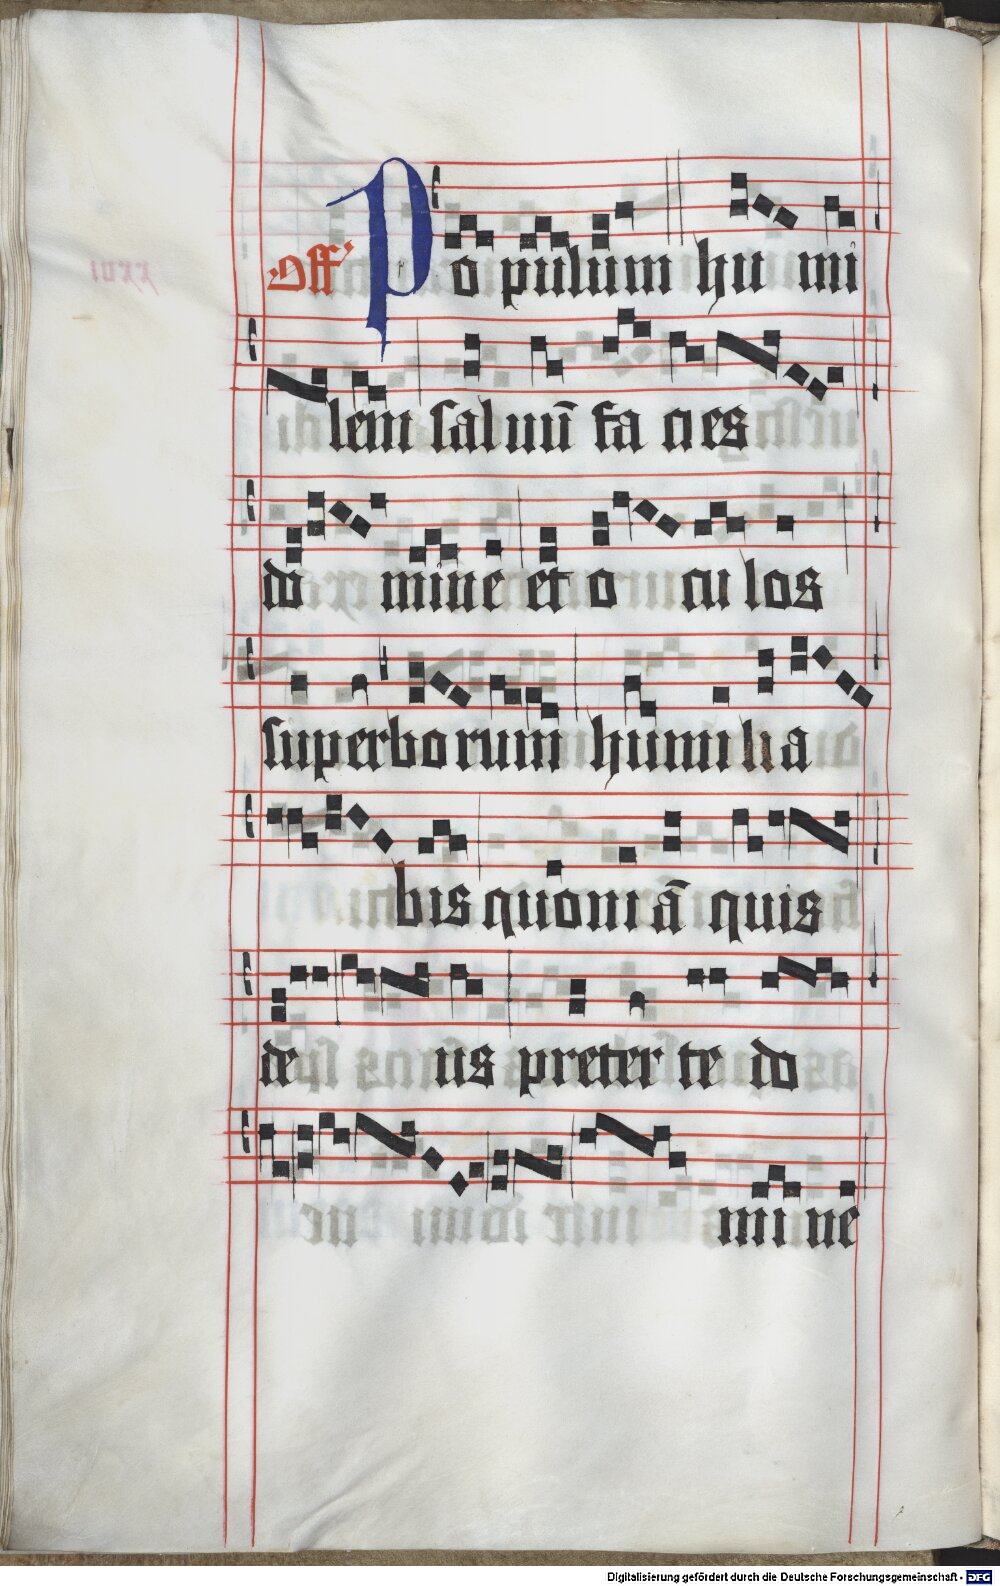 Off Po pulum hu mi
lem saluū fa ci es
do mine et o cu los
superbo rum humi li a
bis quoni ā quis
de us preter te do
mi ne
Digitalisierung gefördert durch die Deutsche Forschungsgemeinschaft - DFG